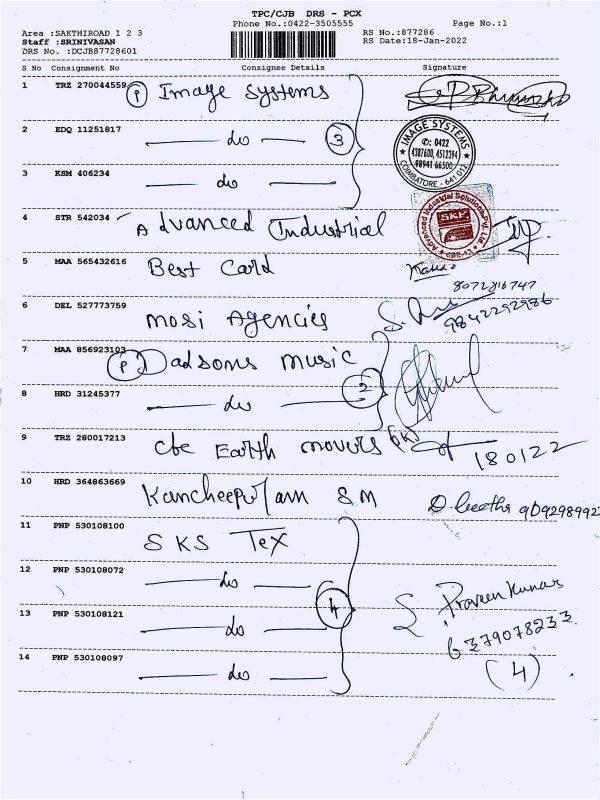 TPC/CJB DRS - PCX
Phone No.:0422-3505555
Page No.:1
Area :SAKTHIROAD 1 2 3
Staff :SRINIVASAN
DRS No. :DCJB87728601
RS No.:877286
RS Date:18-Jan-2022
S No Consignment No Consignee Details Signature
1 TRZ 270044559 (P) Image Systems
2 EDQ 11251817 do (3)
IMAGE SYSTEMS
✆: 0422
4387600, 4512394
98941 66500
COIMBATORE - 641 012
3 KSM 406234 do
4 STR 542034 Advanced Industrial
Advanced Industrial Solutions Pvt. Ltd
SKF
5 MAA 565432616 Best Card
8072816747
6 DEL 527773759 Mosi Agencies
9842292986
7 MAA 856923103 (P) Dadsons Music
8 HRD 31245377 do (2)
9 TRZ 280017213 Cbe Earth movers 180122
10 HRD 364863669 Kancheepuram S M
11 PNP 530108100 SKS Tex
12 PNP 530108072 do (4)
Praveen Kumar
13 PNP 530108121 do
6379078233
14 PNP 530108097 do (4)